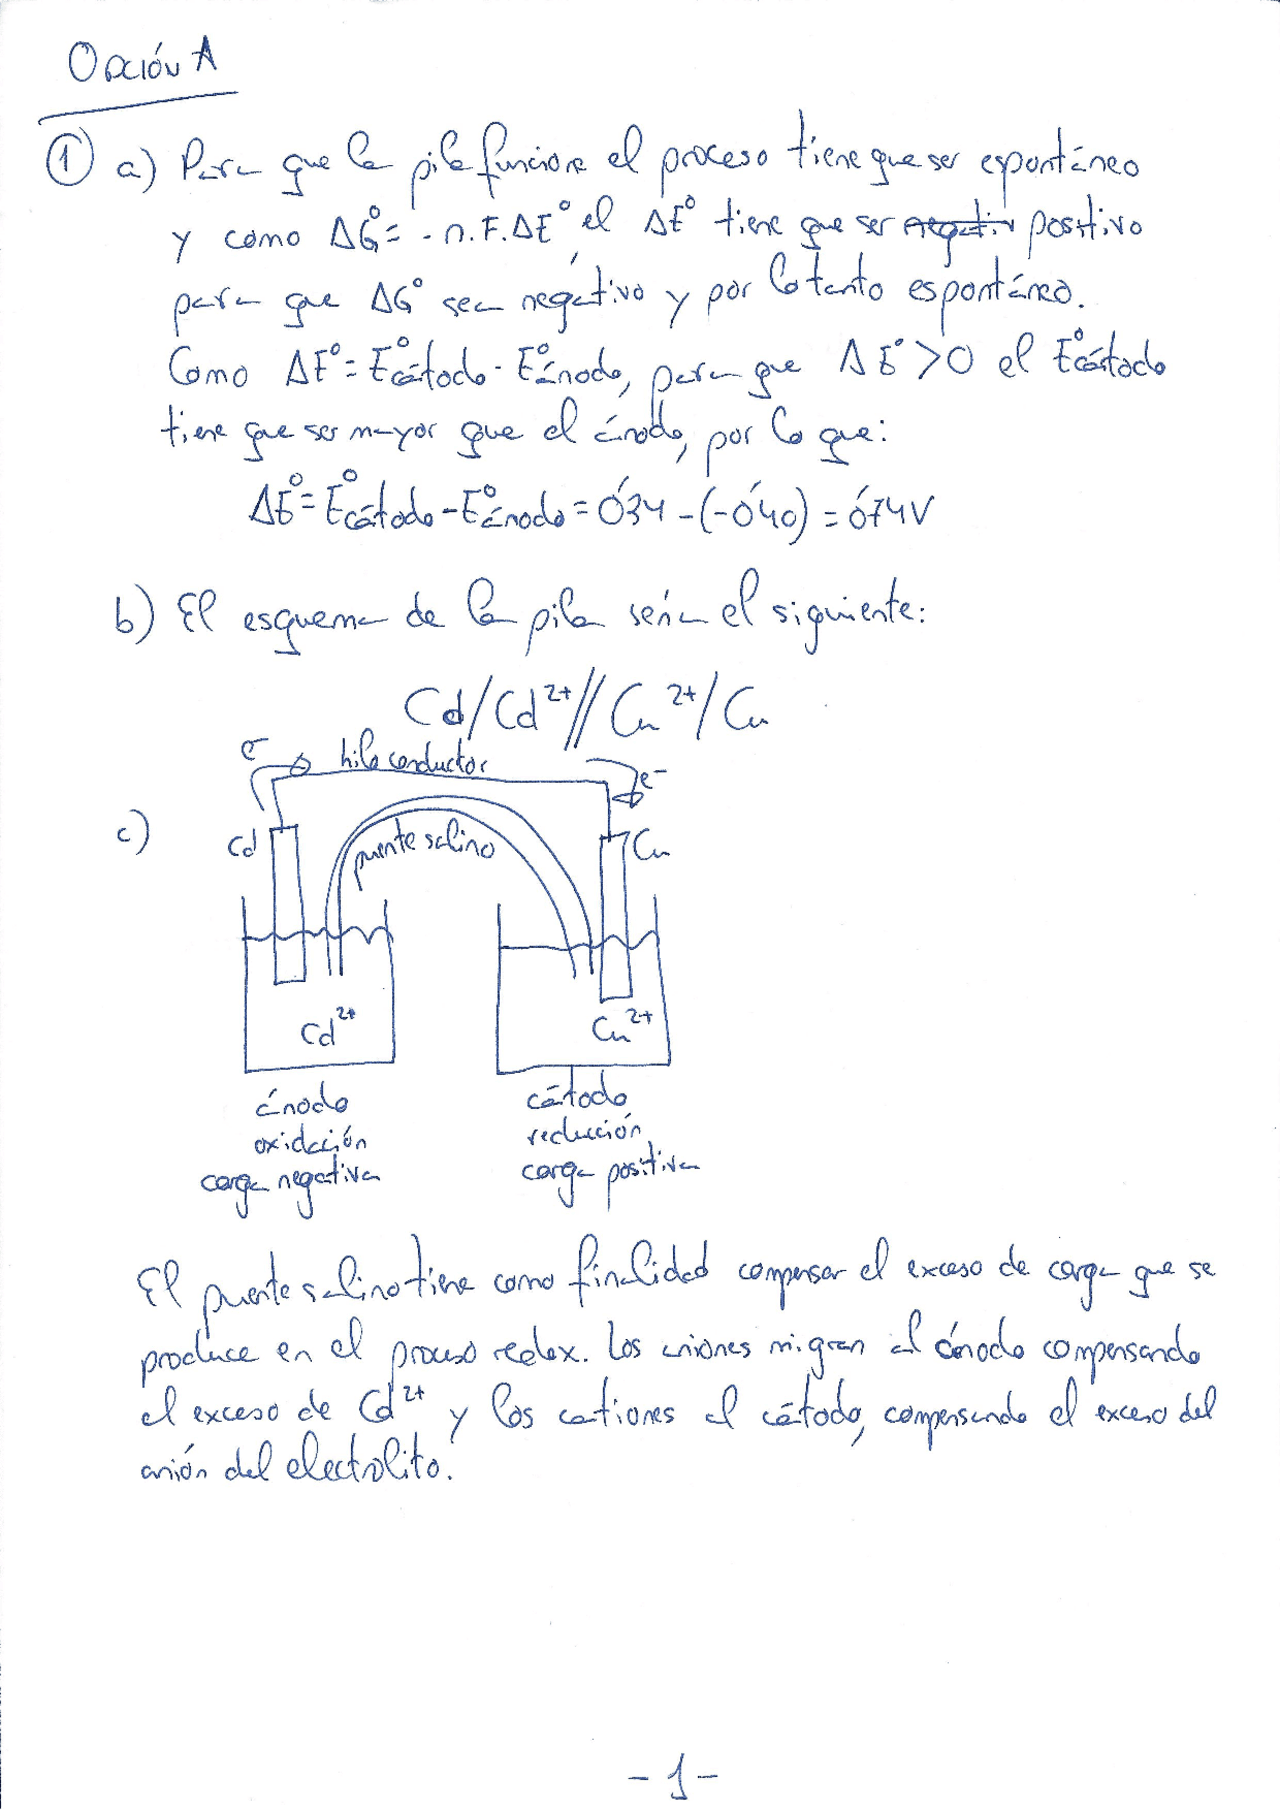 Opción A
① a) Para que la pila funcione el proceso tiene que ser espontáneo
y como ΔG°= -n.F.ΔE°, el ΔE° tiene que ser negativ positivo
para que ΔG° sea negativo y por lo tanto espontáneo.
Como ΔE°= E°cátodo - E°ánodo, para que ΔE°>0 el E°cátodo
tiene que ser mayor que el ánodo, por lo que:
ΔE°= E°cátodo - E°ánodo = 0'34 - (-0'40) = 0'74V
b) El esquema de la pila sería el siguiente:
Cd/Cd²⁺//Cu²⁺/Cu
e⁻ hilo conductor e⁻
c) Cd puente salino Cu
Cd²⁺ Cu²⁺
ánodo cátodo
oxidación reducción
carga negativa carga positiva
El puente salino tiene como finalidad compensar el exceso de carga que se
produce en el proceso redox. Los aniones migran al ánodo compensando
el exceso de Cd²⁺ y los cationes al cátodo, compensando el exceso del
anión del electrolito.
- 1 -